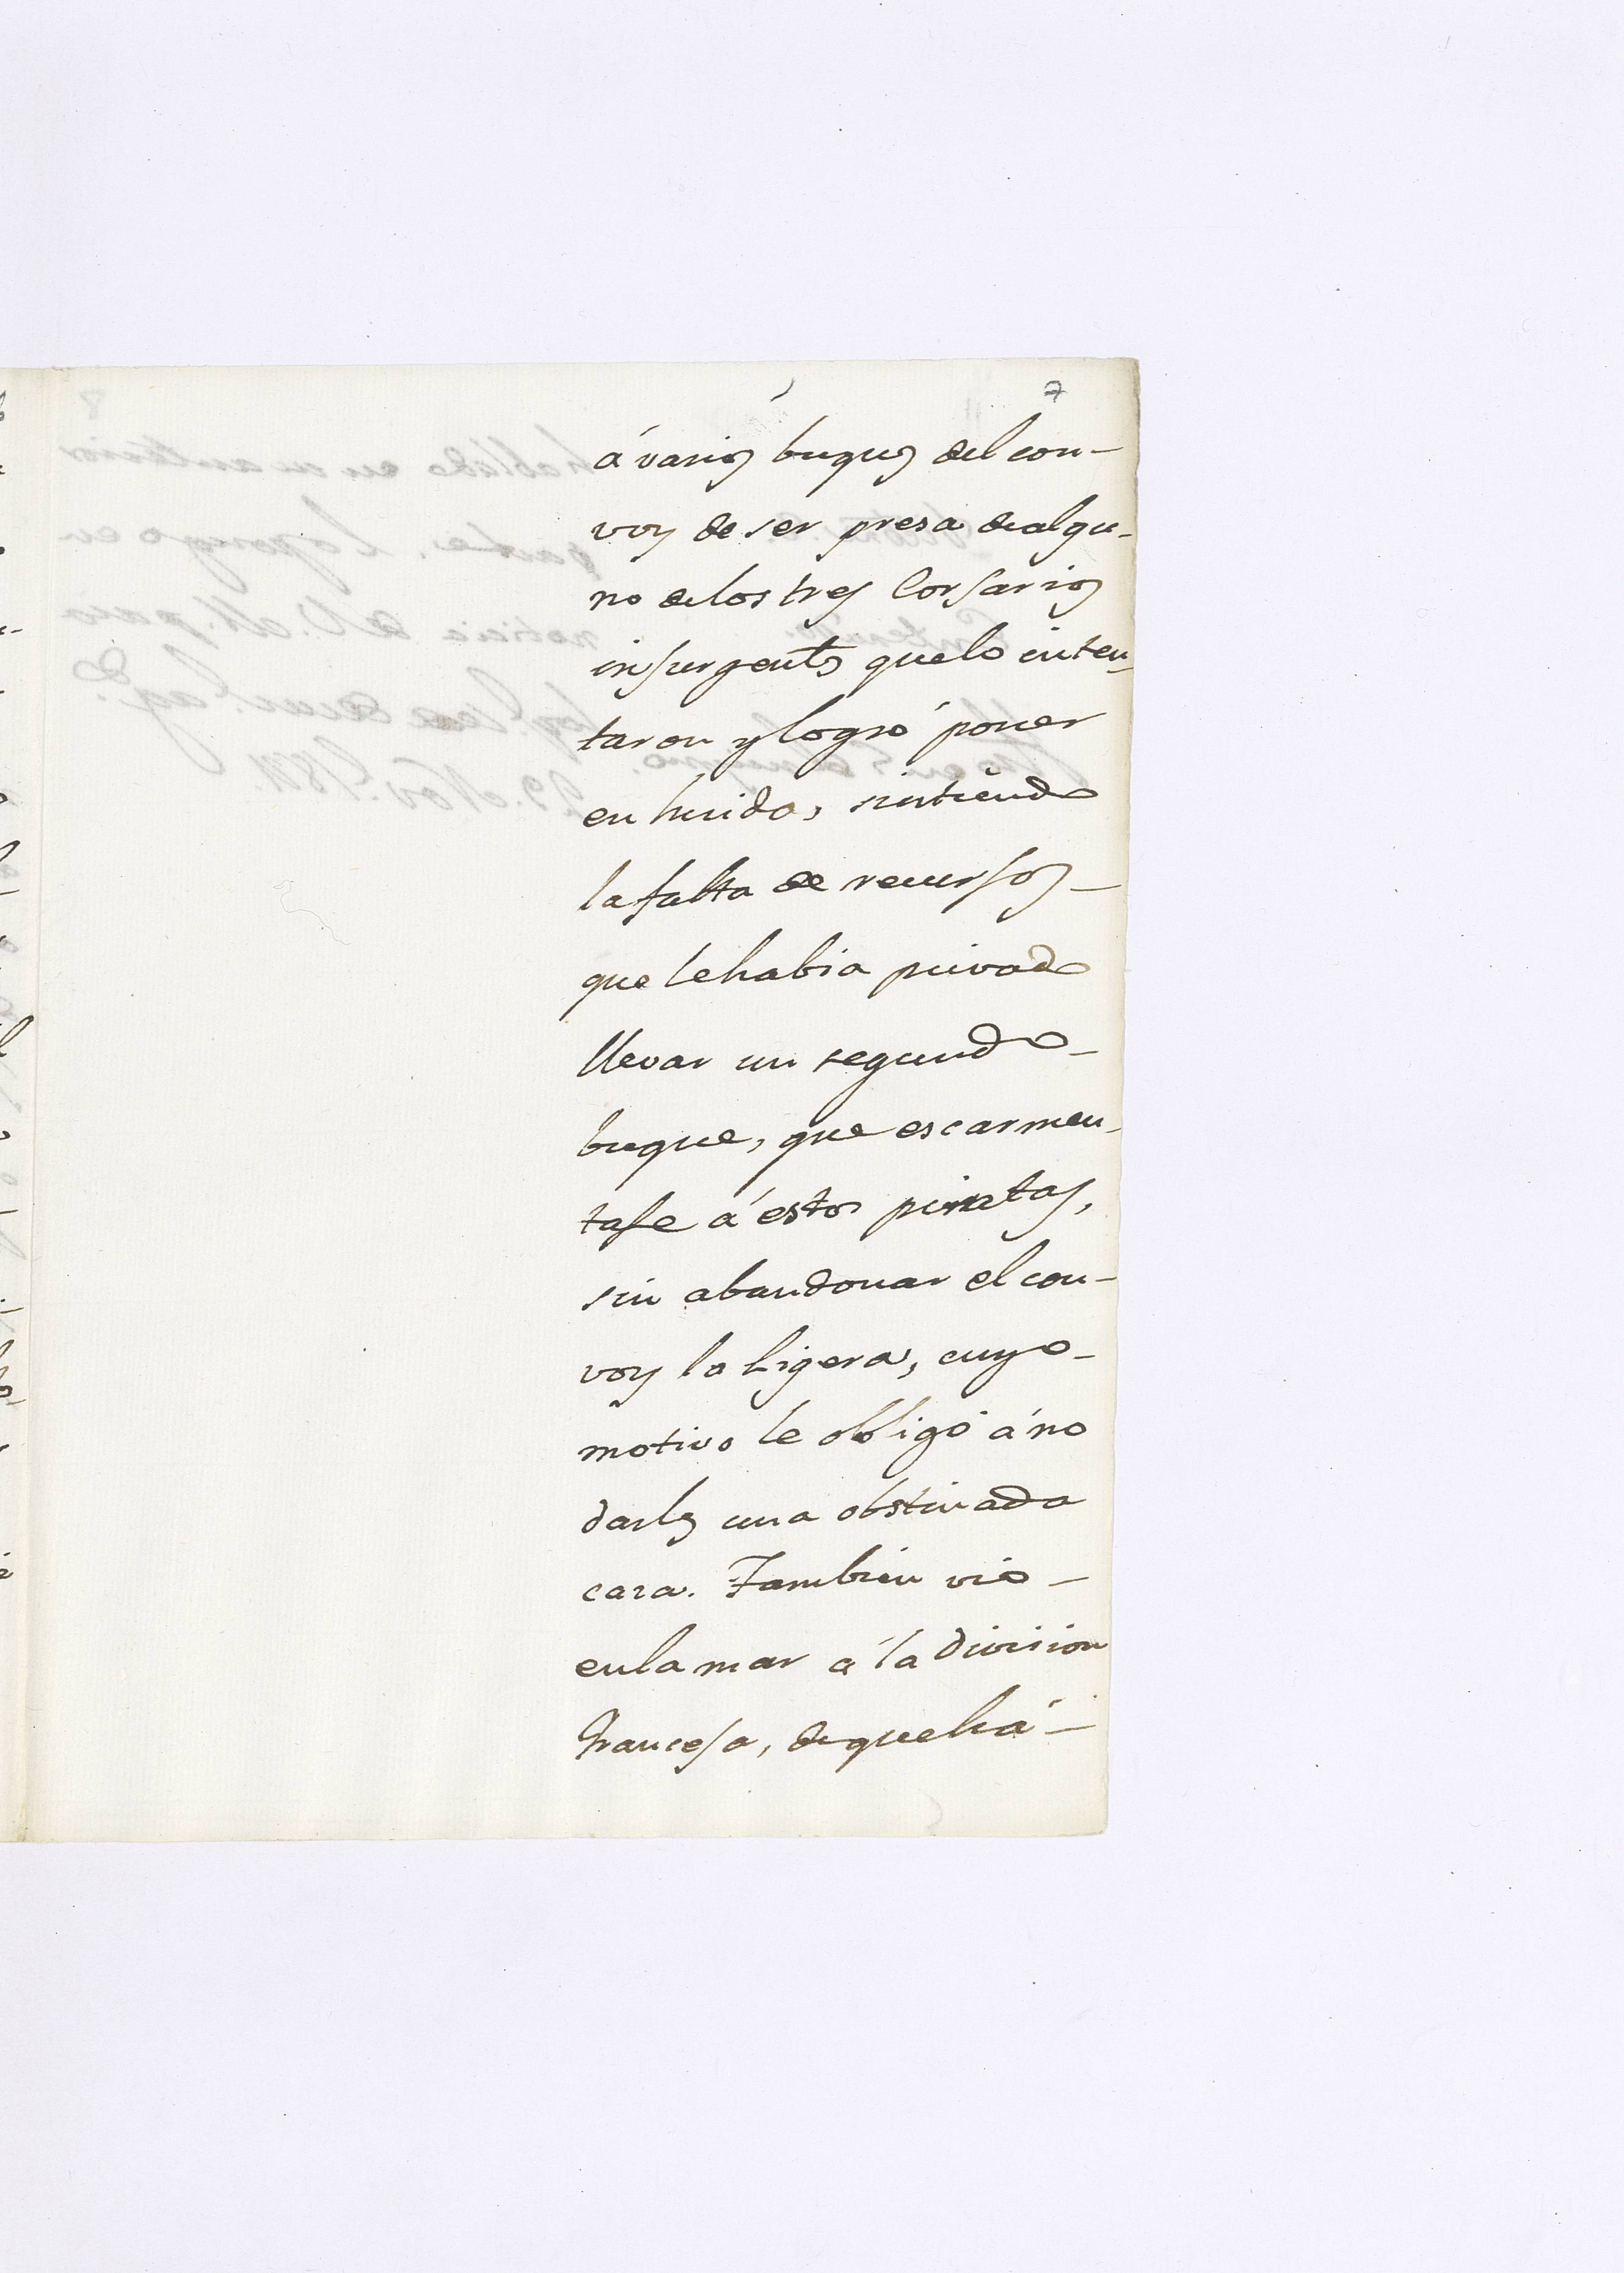 7
á varios buques del con-
voy de ser presa de algu-
no de los tres Corsarios
insurgentes que lo inten-
taron y logró poner
en huida, sintiendo
la falta de recursos -
que le habia privado
llevar un segundo -
buque, que escarmen-
tase á estos piratas,
sin abandonar el con-
voy la Ligera, cuyo -
motivo le obligó á no
darles una obstinada
caza. Tambien vió -
en la mar á la division
Francesa, de que há -